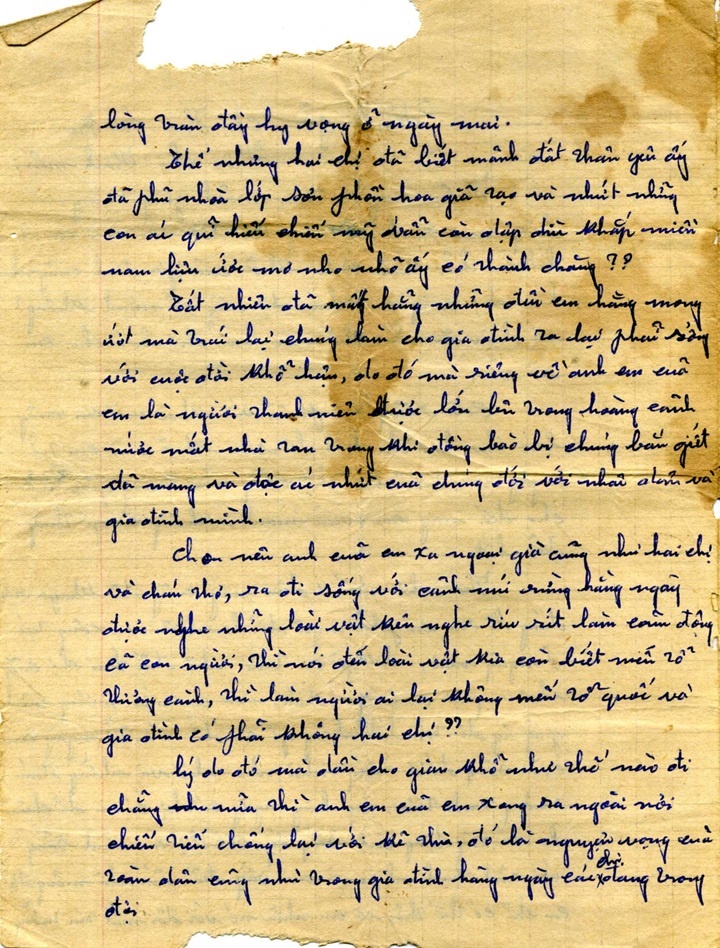 lòng tràn đầy hy vọng ở ngày mai.
Thế nhưng hai chị đã biết mãnh đất thân yêu ấy
đã phũ nhoà lớp sơn phồn hoa giã tạo và nhứt những
con ác quĩ hiếu chiến mỹ vẫn còn dập dìu khắp miền
nam liệu ước mơ nho nhỏ ấy có thành chăng ??
Tất nhiên đã mất hẳng những điều em hằng mong
ước mà trái lại chúng làm cho gia đình ta lại phải sống
với cuộc đời khổ hận, do đó mà riêng về anh em của
em là người thanh niên được lớn lên trong hoàng cảnh
nước mất nhà tan trong khi đồng bào bị chúng bắn giết
dã mang và độc ác nhứt của chúng đối với nhân dân và
gia đình mình.
Cho nên anh của em xa ngoại già cũng như hai chị
và cháu thơ, ra đi sống với cảnh núi rừng hằng ngày
được nghe những loài vật kêu nghe ríu rít làm cảm động
cã con người, thì nói đến loài vật kia còn biết mến tổ
thương cành, thì làm người ai lại không mến tổ quốc và
gia đình có phải không hai chị ??
lý do đó mà dẫu cho gian khổ như thế nào đi
chăng nữa thì anh em của em xong ra ngoài nơi
chiến tiến chống lại với kẽ thù, đó là nguyện vọng của
toàn dân cũng như trong gia đình hằng ngày các chị đang trong
đợi